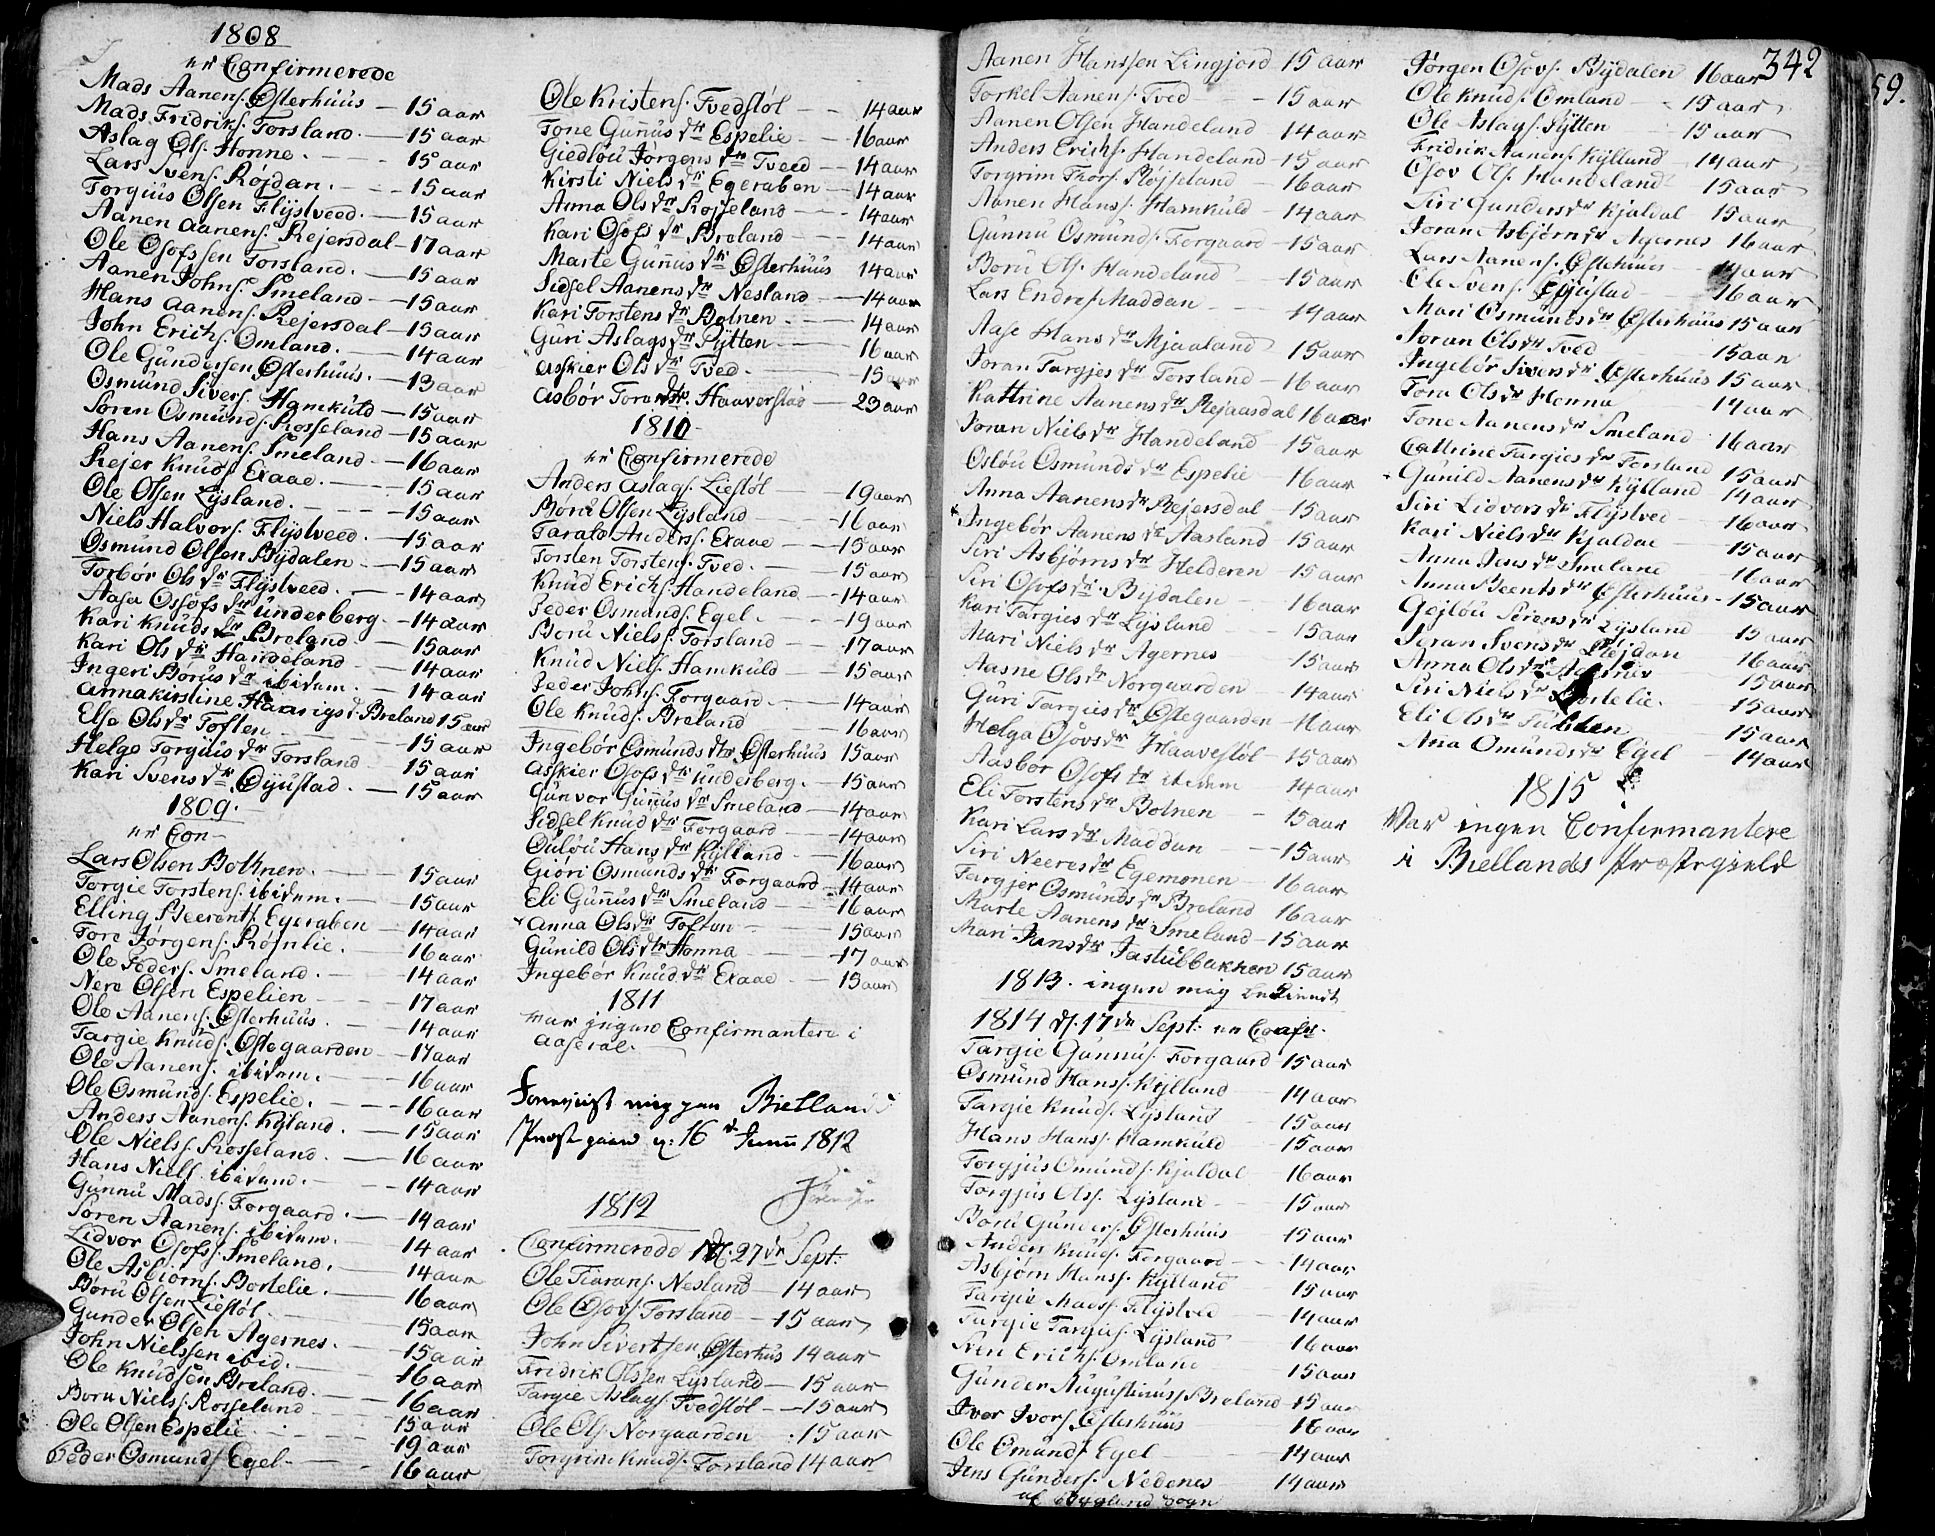 1808
er Confirmerede
Mads Aanens. Østerhuus — 15 aar
Mads Fridriks. Forsland — 15 aar
Aslag Ols. Honne — 15 aar
Lars Svens. Røjdan — 15 aar
Torgius Olsen Flystveed — 15 aar
Aanen Aanens. Rejersdal — 17 aar
Ole Osofssen Forsland — 15 aar
Aanen Johns. Smeland — 15 aar
Hans Aanens. Rejersdal — 15 aar
John Erichs. Omland — 14 aar
Ole Gundersen Østerhuus — 13 aar
Osmund Sivers. Hamkuld — 15 aar
Søren Osmunds. Rosseland — 15 aar
Hans Aanens. Smeland — 16 aar
Rejer Knuds. Exaae — 15 aar
Ole Olsen Lysland — 15 aar
Niels Halvors. Flystveed — 15 aar
Osmund Olsen Bydalen — 15 aar
Torbør Ols dtr Flystveed — 14 aar
Aasa Ossofs dtr Underberg — 14 aar
Kari Knuds dtr Breland — 15 aar
Kari Ols dtr Handeland — 14 aar
Ingeri Børus dtr ibidem — 14 aar
Annakirstine Haarigs d. Breland 15 aar
Elsa Ols dtr Toften — 15 aar
Helge Torguis dtr Forsland 15 aar
Kari Svens dtr Øyustad — 15 aar
1809.
er Con-
Lars Olsen Bothnen — 15 aar
Torgie Torstens. ibidem — 15 aar
Elling Beerents. Egeraben — 14 aar
Tore Jørgens. Røsnlie — 16 aar
Ole Peders. Smeland — 14 aar
Nere Olsen Espelien — 17 aar
Ole Aanens. Østerhuus — 14 aar
Targie Knuds. Østegaarden — 14 aar
Ole Aanens. ibidem — 16 aar
Ole Osmunds. Espelie — 16 aar
Anders Aanens. Kyland — 15 aar
Ole Niels. Rosseland — 16 aar
Hans Niels. ibidem — 14 aar
Gunnu Mads. Forgaard — 14 aar
Søren Aanens. ibidem — 14 aar
Lidvor Osofs. Smeland — 14 aar
Ole Asbiorns. Bortelie — 16 aar
Børu Olsen Liestøl — 15 aar
Gunder Olsen Agernes — 15 aar
John Nielssen ibid. — 16 aar
Ole Knudsen Breland — 16 aar
Boru Niels. Rosseland — 15 aar
Ole Olsen Espelie — 19 aar
Peder Osmunds. Egel — 16 aar
Ole Kristens. Tvedstøl — 14 aar
Tone Gunnus dtr Espelie — 16 aar
Giedlou Jørgens dtr Tveed — 14 aar
Kirsti Niels dtr Egeraben — 14 aar
Anna Ols dtr Rosseland — 14 aar
Kari Osofs dtr Breland — 14 aar
Marte Gunnus dtr Østerhuus 14 aar
Sidsel Aanens dtr Nesland — 14 aar
Kari Torstens dtr Botnen — 14 aar
Guri Aslags dtr Rytten — 16 aar
Asskier Ols dtr Tved — 15 aar
Asbør Tora dtr Haaverstad — 23 aar
1810
er Confirmerede
Anders Aslags. Liestøl — 19 aar
Børu Olsen Lysland — 16 aar
Tarald Anders. Exaae — 15 aar
Torsten Torstens. Tved — 15 aar
Knud Erichs. Handeland — 14 aar
Peder Osmunds. Egel — 19 aar
Boru Niels. Forsland — 17 aar
Knud Niels. Hamkuld — 15 aar
Peder Johns. Forgaard — 14 aar
Ole Knuds. Breland — 16 aar
Ingebór Osmunds dtr Østerhuus 15 aar
Asskier Osofs dtr Underberg — 15 aar
Gunvor Gunnus dtr Smeland — 14 aar
Sidsel Knud dtr Forgaard — 14 aar
Oulou Hans dtr Kylland — 16 aar
Giøri Osmunds dtr Forgaard — 14 aar
Eli Gunnus dtr Smeland — 16 aar
Anna Ols dtr Toften — 15 aar
Gunild Ols dtr Honna — 17 aar
Ingebór Knud dtr Exaae — 15 aar
1811
var ingen Confirmantere i
Aaseral.
Foreviist mig paa Biellands
Præstegaard d: 16 d. Junii 1812
1812
Confirmerede d. 27 de Sept:
Ole Tiarans. Nesland — 14 aar
Ole Osovs. Forsland — 15 aar
John Sivertsen Østerhus 14 aar
Fridrik Olssen Lysland — 15 aar
Targie Aslags. Tvedstøl — 15 aar
Ole Ols. Norgaarden : 15 aar
Torgrim Knuds. Forsland 14 aar
342
59.
Aanen Hanssen Lingjord 15 aar
Torkel Aanens. Tved — 15 aar
Aanen Olsen Handeland 14 aar
Anders Erichs. Handeland — 15 aar
Torgrim Thors. Røsseland — 16 aar
Aanen Hans. Hamkuld — 14 aar
Gunnu Osmunds. Forgaard — 15 aar
Boru Ols. Handeland — 15 aar
Lars Endres. Maddan — 14 aar
Aase Hans dtr Mjaaland 15 aar
Joran Targjes dtr Forsland — 16 aar
Kattrine Aanens dtr Rejaasdal 16 aar
Joran Niels dtr Handeland — 15 aar
Osløu Osmunds dtr Espelie — 16 aar
Anna Aanens dtr Rejersdal — 15 aar
Ingebór Aanens dtr Aasland 15 aar
Siri Asbjørns dtr Helderen 15 aar
Siri Osofs dtr Bydalen — 16 aar
Kari Targies dtr Lysland — 15 aar
Mari Niels dtr Agernes 15 aar
Aasne Ols dtr Norgaarden — 14 aar
Guri Targies dtr Østegaarden — 16 aar
Helga Osovs dtr Haavestøl — 15 aar
Aasbor Osofs dtr ibidem — 14 aar
Eli Torstens dtr Botnen — 15 aar
Kari Lars dtr Maddan — 15 aar
Siri Neeres dtr Egemonen — 16 aar
Targjer Osmunds dtr Breland 16 aar
Marte Aanens dtr Smeland — 15 aar
Mari Jens dtr Jastulbakken 15 aar
1813. ingen mig bekiendt
1814 d. 17 de Sept: er Conf.
Targie Gunnus. Forgaard 15 aar
Osmund Hans. Kylland — 14 aar
Targie Knuds. Lysland 15 aar
Hans Hans. Hamkuld — 15 aar
Torgjus Omunds. Kjaldal 16 aar
Torgjus Ols. Lysland — 15 aar
Boru Gunders. Østerhuus — 15 aar
Anders Knuds. Forgaard — 14 aar
Asbjørn Hans. Kylland 15 aar
Targie Mads. Flystved — 14 aar
Targie Targies. Lysland 16 aar
Sven Erichs. Omland — 15 aar
Gunder Augustinus. Breland — 15 aar
Iver Ivers. Østerhuus — 16 aar
Ole Omunds. Egel — 14 aar
Jens Gunders. Nedenes — 14 aar
af Bygland Sogn
Jørgen Osovs. Bydalen 16 aar
Ole Knuds. Omland — 15 aar
Ole Aslags. Rytten — 15 aar
Fridrik Aanens. Kylland — 14 aar
Osov Ols. Handeland 15 aar
Siri Gunders dtr Kjaldal 15 aar
Joran Asbjørn dtr Agernes 16 aar
Lars Aanens. Østehuus — 14 aar
Ole Svens. Øyustad — 16 aar
Mari Osmunds dtr Østerhuus 15 aar
Joran Ols dtr Tved 15 aar
Ingebór Sivers dtr Østerhuus 15 aar
Tora Ols dtr Honna — 14 aar
Tone Aanens dtr Smeland — 16 aar
Cattrine Targies dtr Forsland 15 aar
Gunild Aanens dtr Kylland — 14 aar
Siri Lidvors dtr Flystved — 16 aar
Kari Niels dtr Kjaldal — 15 aar
Anna Jens dtr Smeland 16 aar
Anna Beents dtr Østerhuus — 15 aar
Gejlou Sørens dtr Lysland — 15 aar
Joran Svens dtr Røjdan 16 aar
Anna Ols dtr Agernes 15 aar
Siri Niels dtr Bortelie 15 aar
Eli Ols dtr 15 aar
Anna Omunds dtr Egel — 14 aar
1815
Var ingen Confirmantere
i Biellands Præstegield